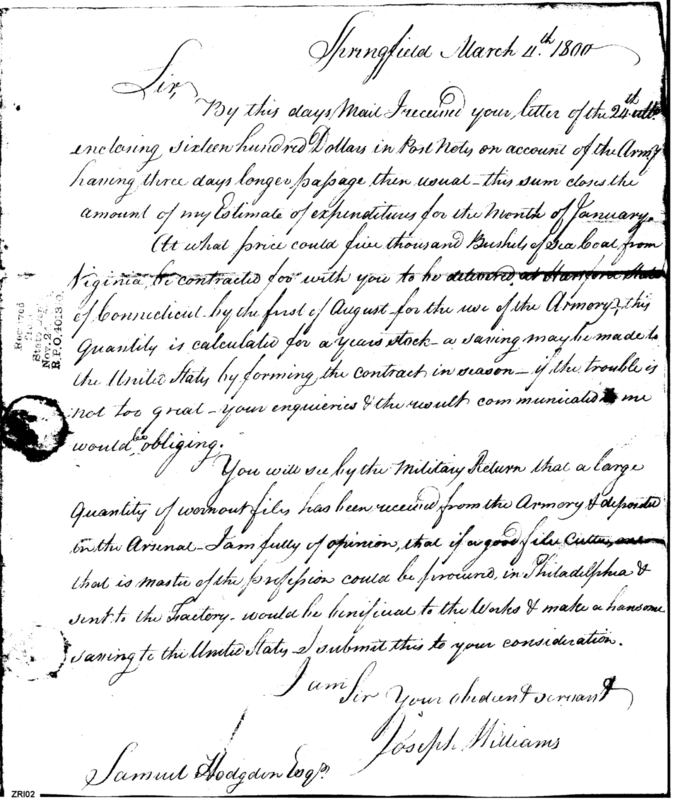 Springfield March 4th. 1800
Sir,
By this days Mail I received your letter of the 24th ulto.
enclosing sixteen hundred Dollars in Post Notes on account of the Army
having three days longer passage then usual - this sum closes the
amount of my Estimate of expenditures for the Month of January.
At what price could five thousand Bushels of Sea Coal, from
Virginia, be contracted for with you to be delivered, at Hartford State
of Connecticut - by the first of August - for the use of the Armory? this
Quantity is calculated for a years stock - a saving may be made to
the United States by forming the contract in season - if the trouble is
not too great - your enquieries & the result communicated to me
would be obliging.
You will see by the Military Return that a large
Quantity of wornout files has been received from the Armory & deposited
in the Arsenal - I am fully of opinion, that if a good file Cutter, one
that is master of the profession could be procured, in Philadelphia &
sent to the Factory - would be benificial to the Works & make a hansome
saving to the United States - I submit this to your consideration.
I am
Sir Your obedient servant
Joseph Williams
Samuel Hodgdon Esqr.
Received
State
Nov. 2
R.P.O. 401
ZRI02